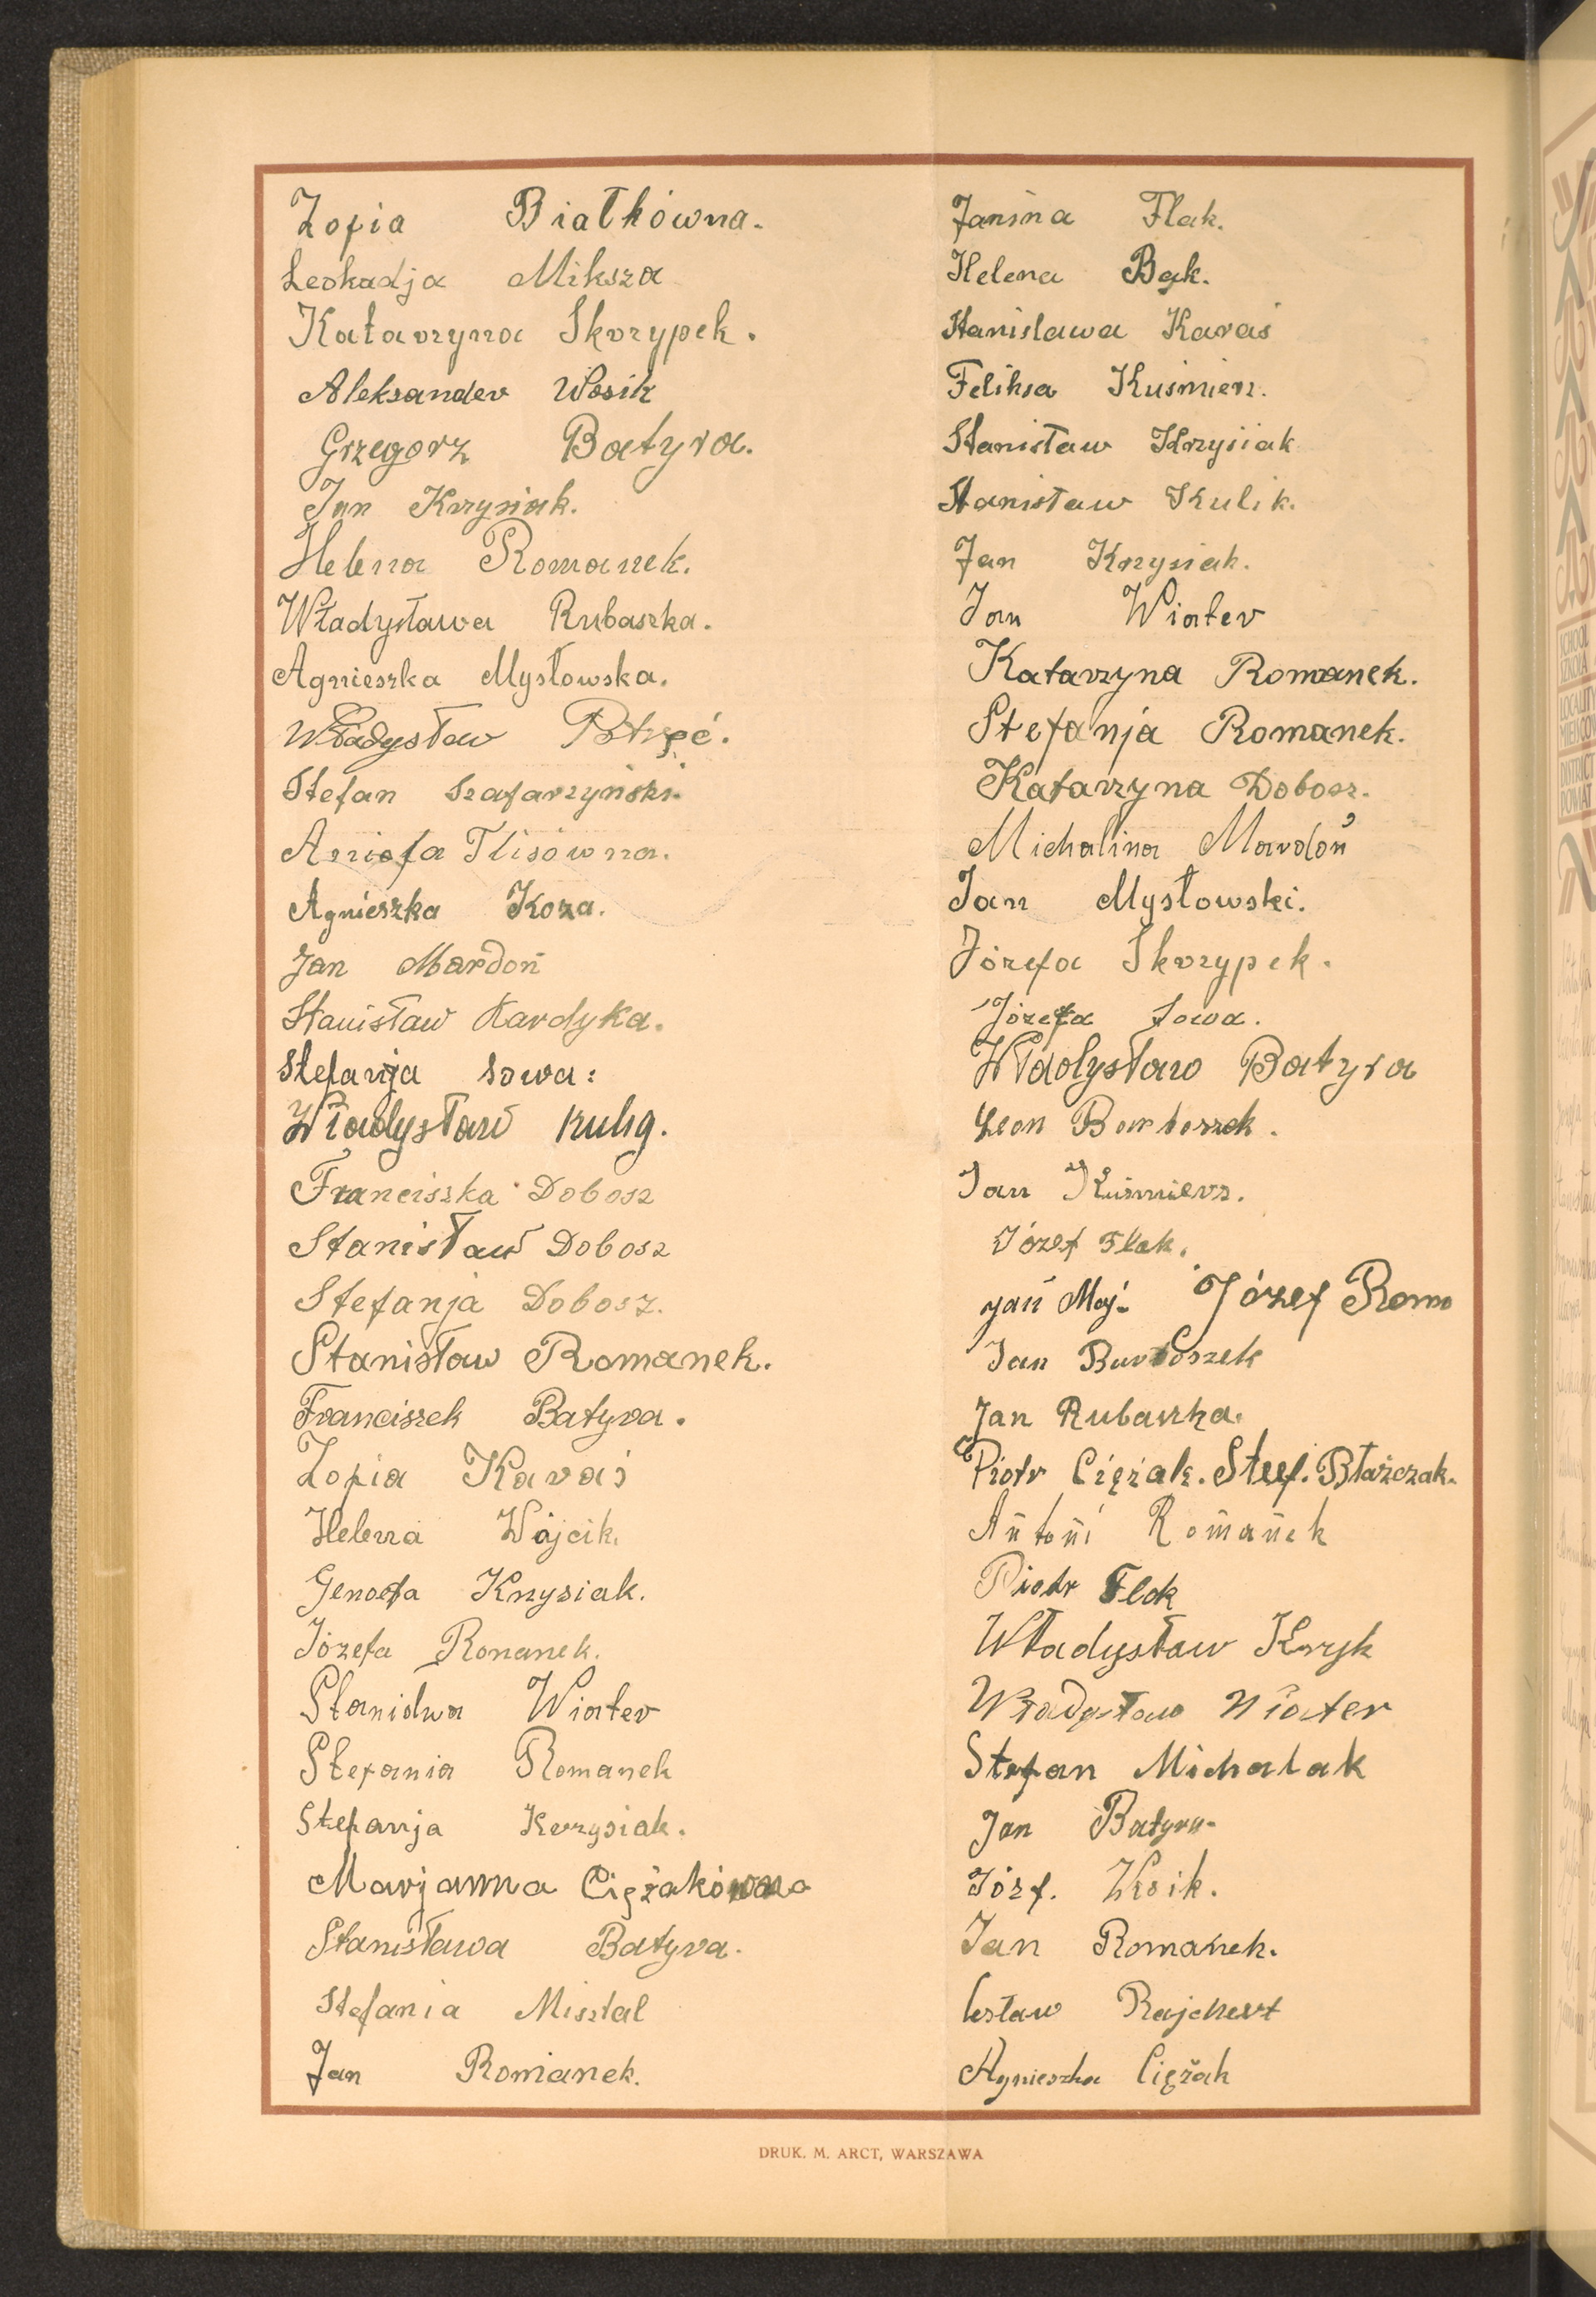 Zofia Białkówna.
Leokadja Miksza
Katarzyna Skrzypek.
Aleksander Wosik
Grzegorz Batyra.
Jan Krzysiak.
Helena Romanek.
Władysława Rubaszka.
Agnieszka Mysłowska.
Władysław
Stefan Szafarzyński.
Aniela Flisówna.
Agnieszka Koza.
Jan Mardoń
Stanisław Kardyka.
Stefanja Sowa:
Władysław Kulig.
Franciszka Dobosz
Stanisław Dobosz
Stefanja Dobosz.
Stanisław Romanek.
Franciszek Batyra.
Zofia Karaś
Helena Wójcik.
Genoefa Krzysiak.
Józefa Romanek.
Stanisłwa Wiater
Stefania Romanek
Stefanja Krzysiak.
Marjanna Ciężakówna
Stanisława Batyra.
Stefania Misztal
Jan Romanek.
Janina Flak.
Helena Bąk.
Stanisława Karaś
Feliksa Kuśmierz.
Stanisław Krzysiak
Stanisław Kulik.
Jan Krzysiak.
Jan Wiater
Katarzyna Romanek.
Stefanja Romanek.
Katarzyna Dobosz.
Michalina Mardoń
Jan Mysłowski.
Józefa Skrzypek.
Józefa Sowa.
Władysław Batyra
Leon Bartoszek.
Jan Kuśmierz.
Józef Flak.
Jan Maj. Józef Roma
Jan Bartoszek
Jan Rubaszka.
Piotr Ciężak. Stef. Błażczak.
Antoni Romanek
Piotr Flak
Władysław Kryk
Władysław Wiater
Stefan Michalak
Jan Batyra.
Józf. Wosik.
Jan Romanek.
Czsław Rajchert
Agnieszka Ciężak
DRUK. M. ARCT, WARSZAWA
SCHOOL
SZKOŁA
LOCALITY
DISTRICT
POWIAT